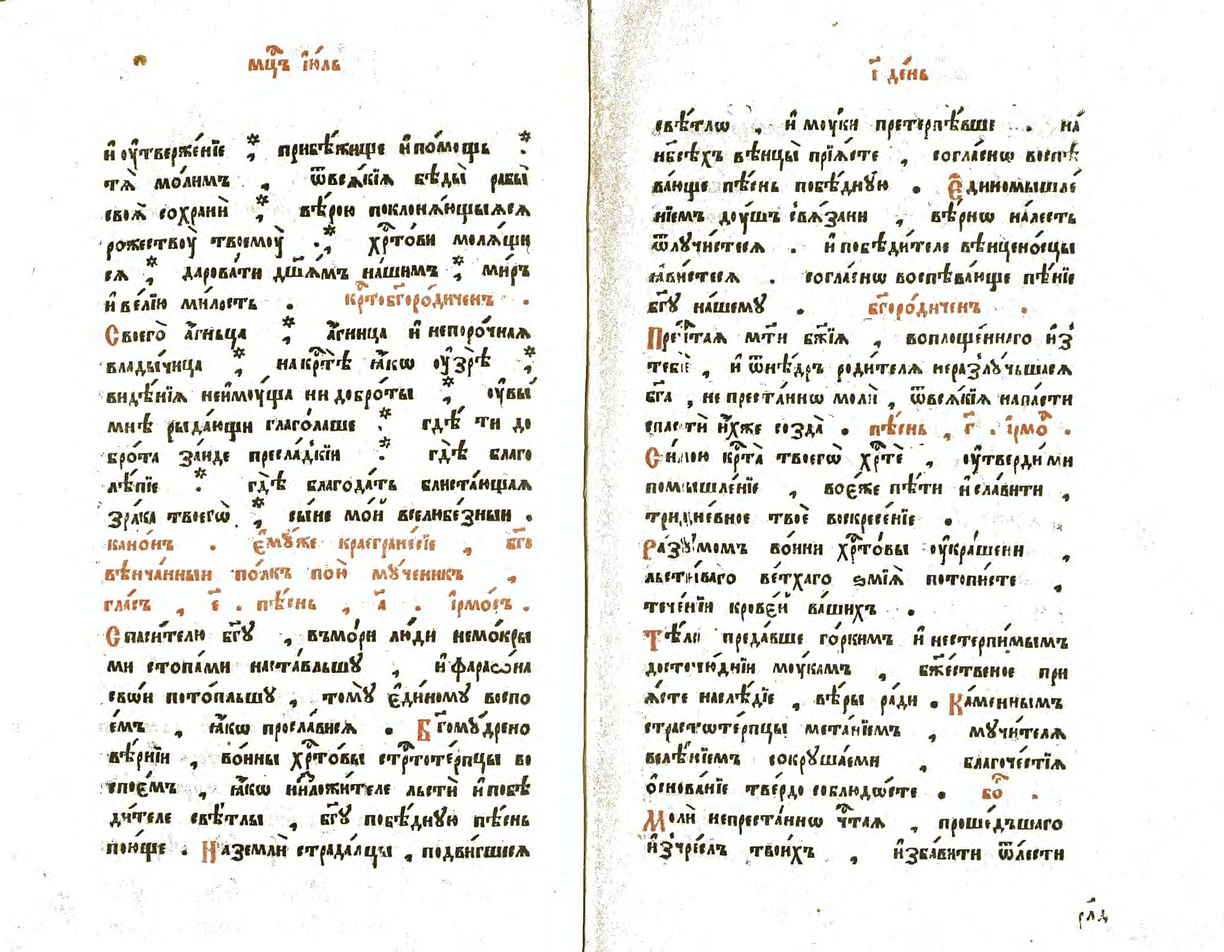 мц҃ъ і҆ю́ль
и҆ оу҆твержє́нїе ⁏ прибѣ́жище и҆ по́мощь ⁏
тѧ̀ мо́лимъ , ѿ всѧ́кїѧ бѣды̀ рабы̀
своѧ̀ сохранѝ ⁏ вѣ́рою поклонѧ́ющыѧсѧ
рожествоу̀ твоемоу̀ ⁏ хр҇то́ви молѧ́щи
сѧ ⁏ дарова́ти дш҃а́мъ на́шимъ ⁏ ми́ръ
и҆ ве́лїю ми́лость . кр҇тобг҃оро́диченъ .
Своего̀ а҆́гньца ⁏ а҆́гница и҆ непоро́чнаѧ
влады́чица ⁏ на кр҇тѣ̀ ꙗ҆́кѡ оу҆зрѣ̀ ⁏
видѣ́нїѧ не и҆моу́ща ни добро́ты ⁏ оу҆вы̀
мнѣ̀ рыда́ющи глаго́лаше ⁏ гдѣ́ ти до
бро́та за́иде пресла́дкїи ⁏ гдѣ̀ благо
лѣ́пїе ⁏ гдѣ̀ благода́ть блиста́ющаѧ
зра́ка твоегѡ̀ ⁏ сы́не мо́й вселюбе́зныи .
кано́нъ . є҆мꙋ́же краегране́сїе , бг҃о
вѣнча́нныи по́лкъ пою̀ мꙋ́ченикъ ,
гла́съ , є҃ . пѣ́снь , а҃ . і҆рмо́съ .
Спаси́телю бг҃ꙋ , въ мо́ри лю́ди немо́кры
ми стопа́ми наста́вльшꙋ , и҆ фараѡ́на
свѡ́и пото́пльшꙋ , томꙋ̀ є҆ди́номꙋ воспо
е́мъ , ꙗ҆́кѡ просла́висѧ . Бг҃омꙋ́дрено
вѣ́рнїи , во́ины хр҇то́вы стр҇тоте́рпцы во
споє́мъ , ꙗ҆́кѡ низложи́теле льсти̏ и҆ побѣ
ди́теле свѣ́тлы , бг҃ꙋ побѣ́днꙋю пѣ́снь
пою́ще . На землѝ страда́лцы , подви́гшесѧ
і҃ де́нь
свѣ́тлѡ , и҆ моу́ки претерпѣ́вше . на́
нб҃сѣхъ вѣнцы̀ прїѧ́сте , согла́снѡ воспѣ
ва́юще пѣ́снь побѣ́днꙋю . Є҆диномышле́
нїемъ доу́шъ свѧ́зани , вѣ́рнѡ на́лесть
ѿлꙋчи́стесѧ . и҆ побѣди́теле вѣнцено́сцы
ꙗ҆ви́стесѧ . согла́снѡ воспѣва́юще пѣ́нїе
бг҃ꙋ на́шемꙋ . бг҃оро́диченъ .
Пречи́таѧ мт҃и бж҃їѧ , воплоще́ннаго и҆з̾
тебѐ , и҆ ѿ нѣ́дръ роди́телѧ неразлꙋ́чьшаѧсѧ
бг҃а , не преста́ннѡ молѝ , ѿ всѧ́кїѧ напа́сти
спастѝ и҆́хже созда̀ . пѣ́снь , г҃ . і҆рмо҇ .
Си́лою кр҇та̀ твоегѡ̀ хр҇тѐ , оу҆твердѝ ми
помышле́нїе , воє́же пѣ́ти и҆ сла́вити ,
тридне́вное твоѐ воскресе́нїе .
Ра́зꙋмомъ во́ини хр҇то́вы оу҆краше́ни ,
льсти́ваго ве́тхаго ѕмі́ѧ потописте ,
тече́нїи кровє́й ва́шихъ .
Тѣ́ло преда́вше го́ркимъ и҆ нестерпи́мымъ
досточю́днїи моу́камъ , бж҃е́ственое при
ꙗ҆́сте наслѣ́дїе , вѣ́ры ра́ди . Ка́меннымъ
страстѡте́рпцы мета́нїемъ , мꙋчи́телѧ
велѣ́нїемъ сокрꙋша́еми , благоче́стїѧ
ѡ҆снова́нїе тве́рдо соблюдо́сте . бо҇ .
Молѝ непреста́ннѡ чт҇аѧ , проше́дъшаго
и҆з̾ чре́слъ твои́хъ , и҆зба́вити ѿ ле́сти
рл҃д